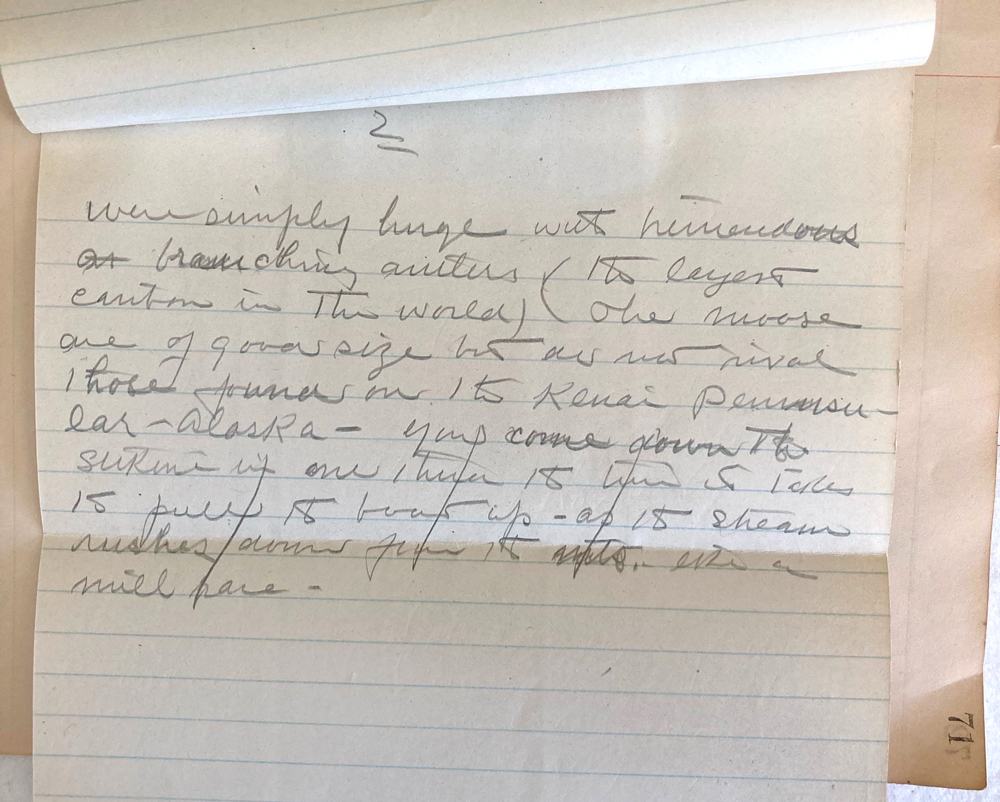 2
were simply huge with tremendous
branching antlers (the largest
caribou in the world) The moose
are of good size but do not rival
those found on the Kenai Peninsu-
lar - Alaska - you come down the
Stikine in one third the time it takes
to pull the boat up - as the stream
rushes down from the mts. like a
mill race -
71